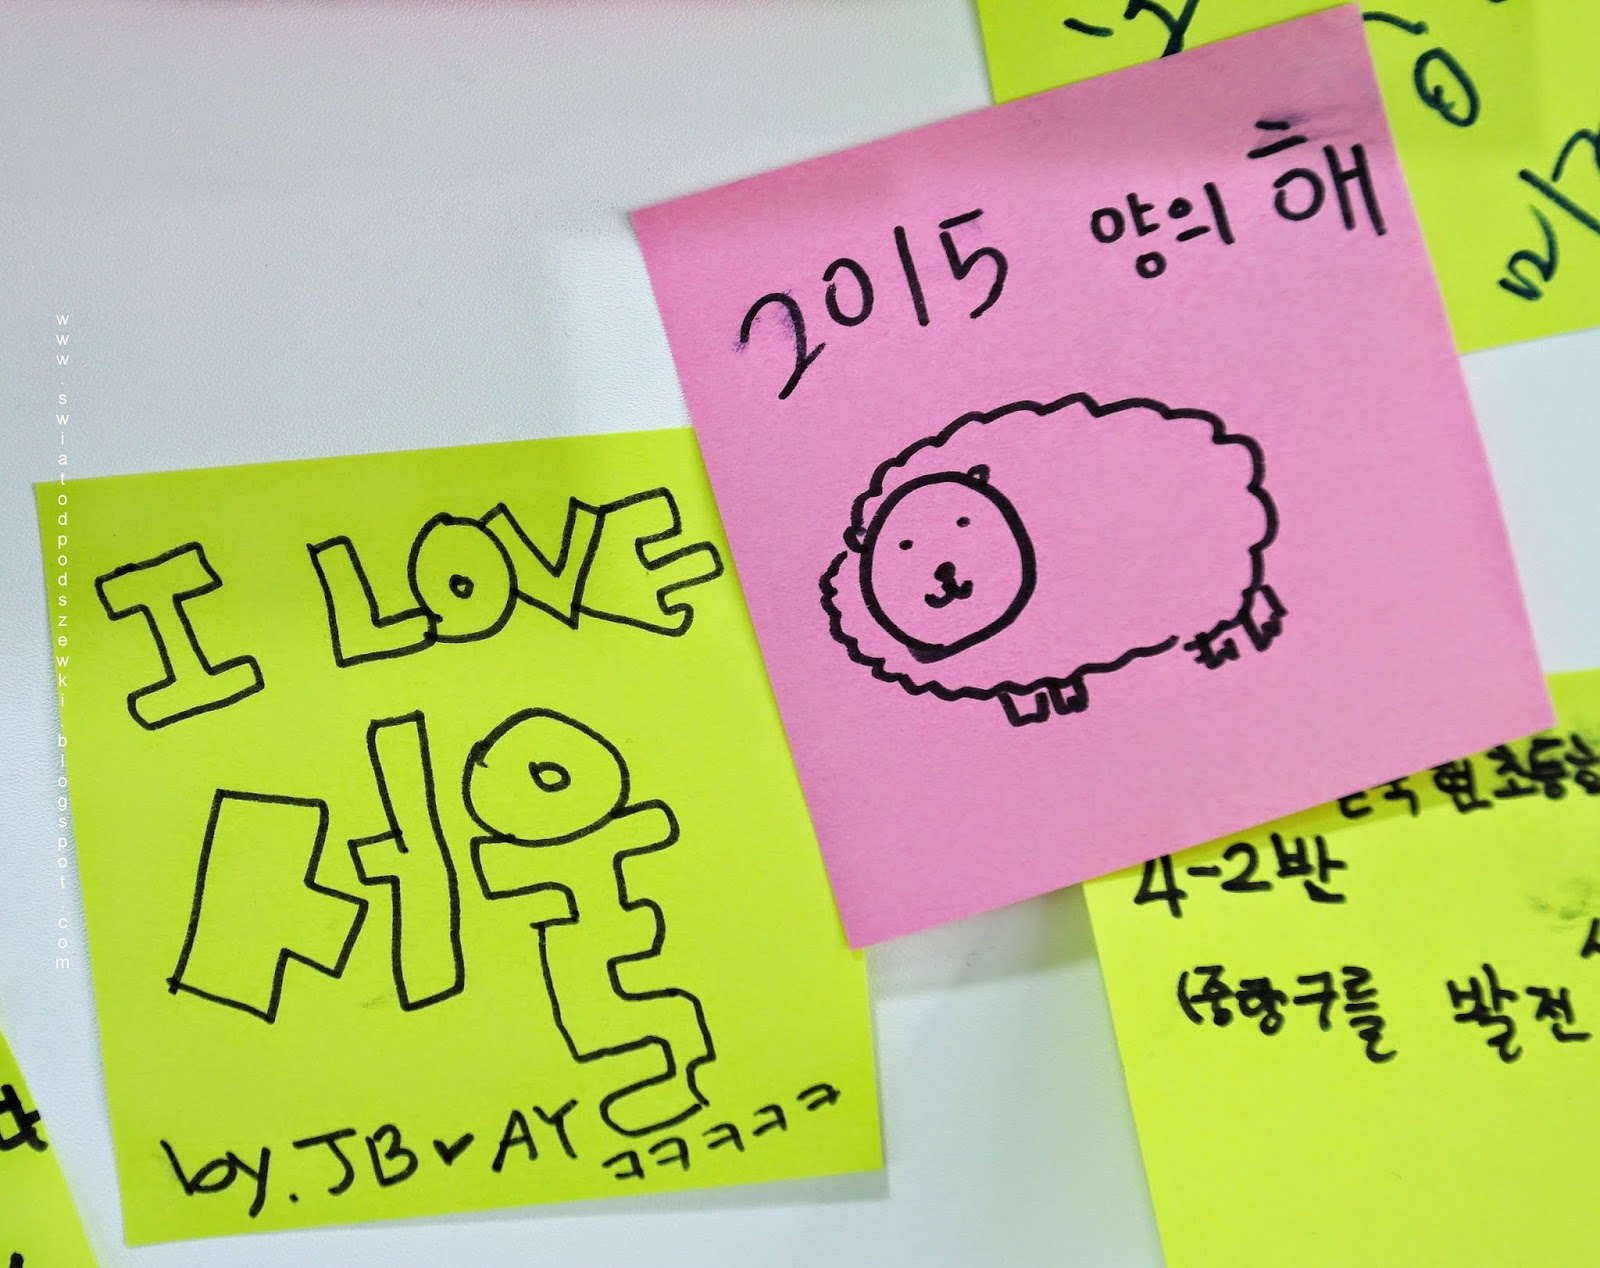 2015 양의 해
I LOVE
서울
by. JB♥AY ㅋㅋㅋㅋㅋ
4-2반
(중랑구를 발전
www.swiatodpodszewki.blogspot.com